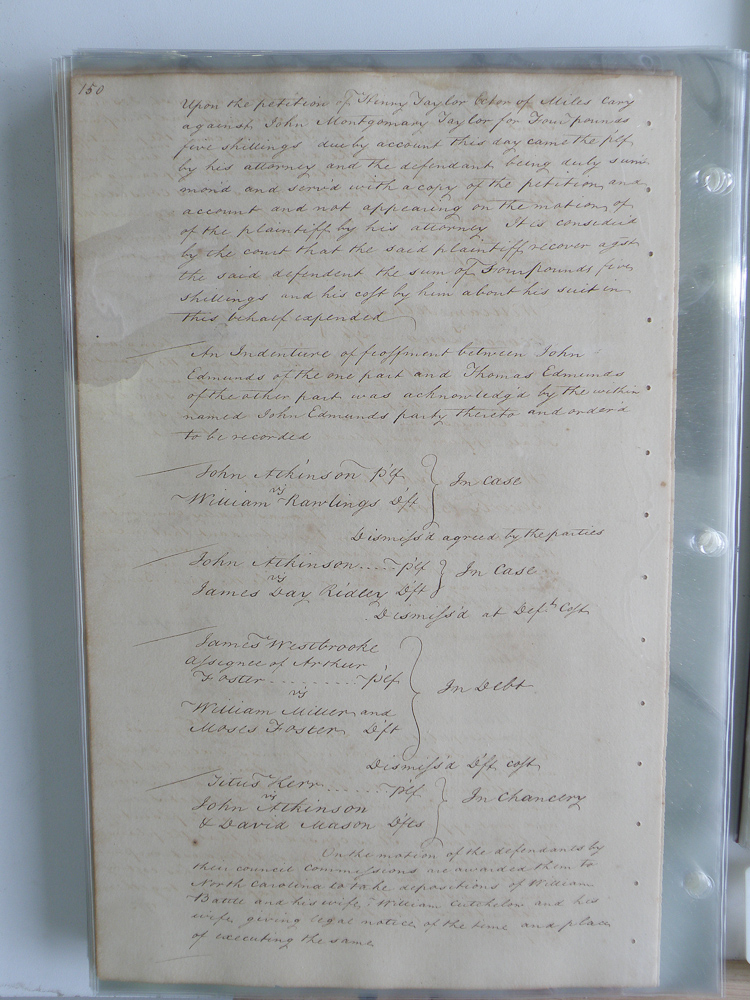 150
Upon the petition of Henry Taylor Exetor of Miles Cary
against John Montgomary Taylor for Four pounds
five shillings due by account this day came the plf
by his attorney and the defendant being duly sum
mon'd and serv'd with a copy of the petition and
account and not appearing on the motion of
of the plaintiff by his attorney It is consider'd
by the court that the said plaintiff recover agst
the said defendent the sum of Four pounds five
shillings and his cost by him about his suit in
this behalf expended
An Indenture of feoffment between John
Edmunds of the one part and Thomas Edmunds
of the other part was acknowledg'd by the within
named John Edmunds party thereto and order'd
to be recorded
John Atkinson plf
vs
In Case
William Rawlings Dft
Dismiss'd agreed by the parties
John Atkinson ..... plf
vs
In Case
James Day Ridley Dft
Dismiss'd at Defts Cost
James Westbrooke
assignee of Arthur
Foster ......... plf
vs
In Debt
William Miller and
Moses Foster Dft
Dismiss'd Dft cost
Titus Kerr ...... plf
vs
In Chancery
John Atkinson
& David Mason Dfts
On the motion of the defendants by
their council Commissions are awarded them to
North Carolina to take depositions of William
Battle and his wife William Cutchelow and his
wife giving legal notice of the time and place
of executing the same